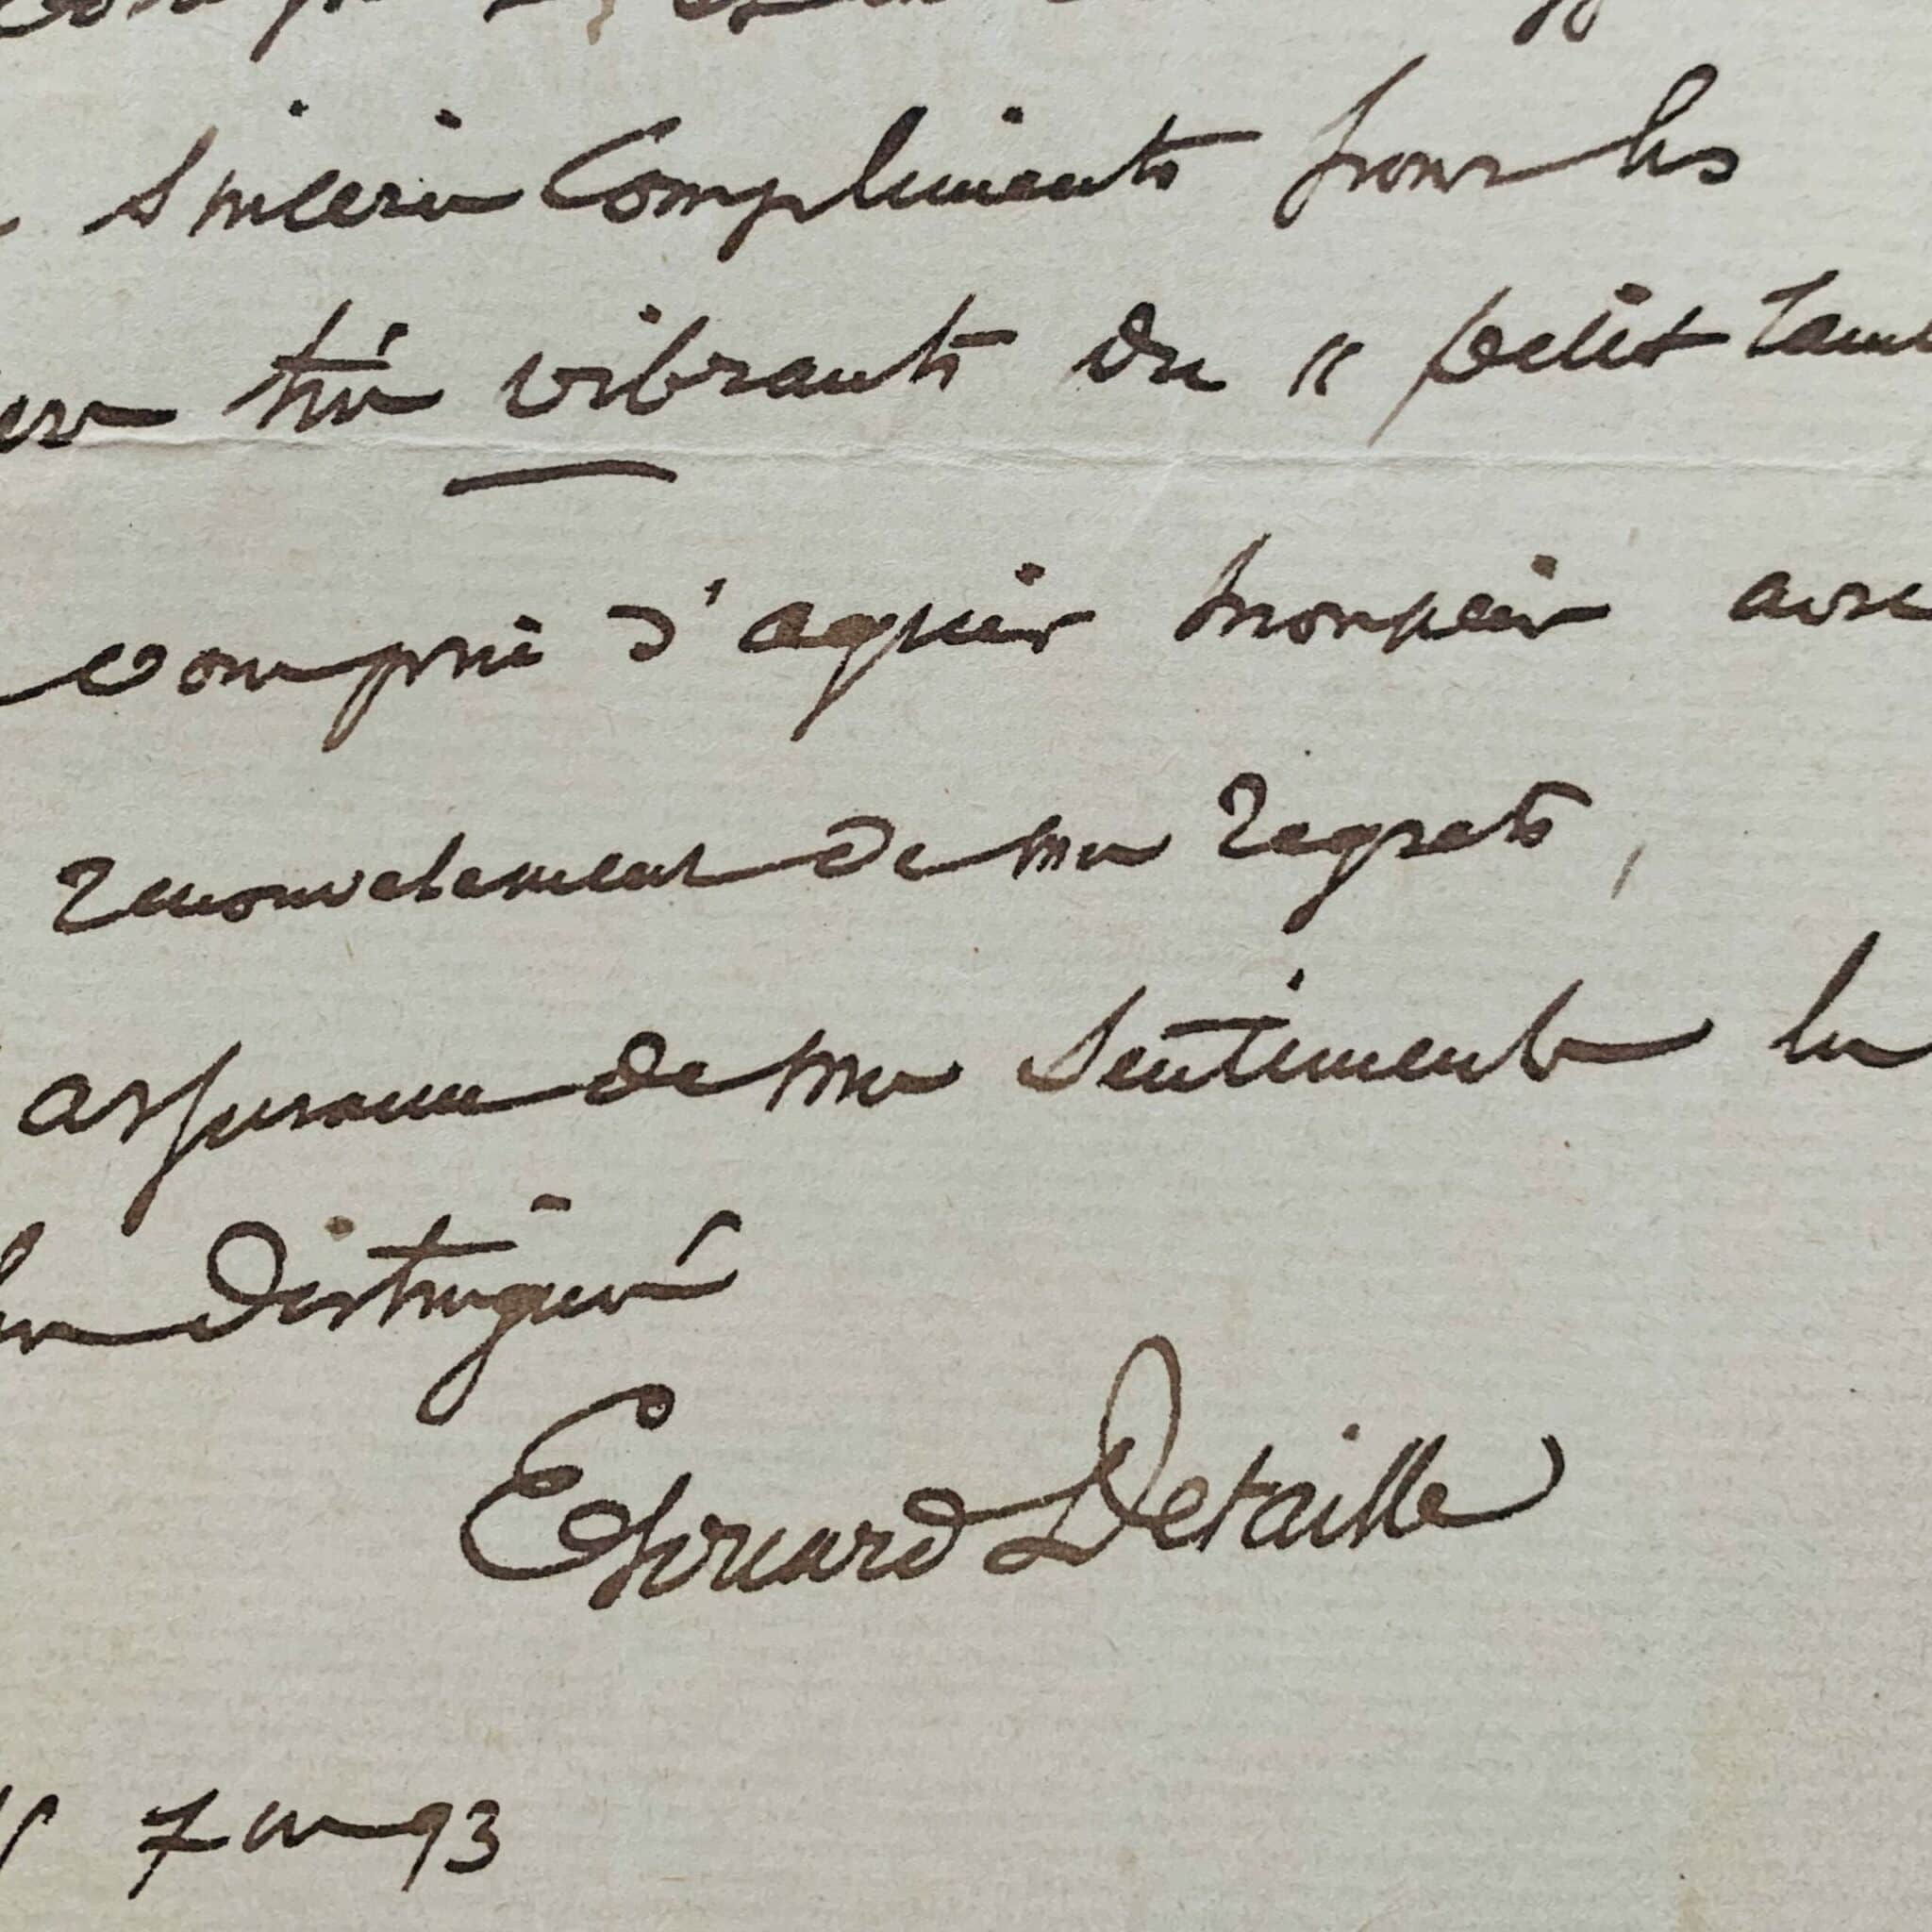 sincères compliments pour les
vers très vibrants du " petit Tam
vous prie d'agréer Monsieur avec
renouvelement de mes regrets,
assurance de mes sentiments les
plus distingués
Edouard Detaille
7bre 93